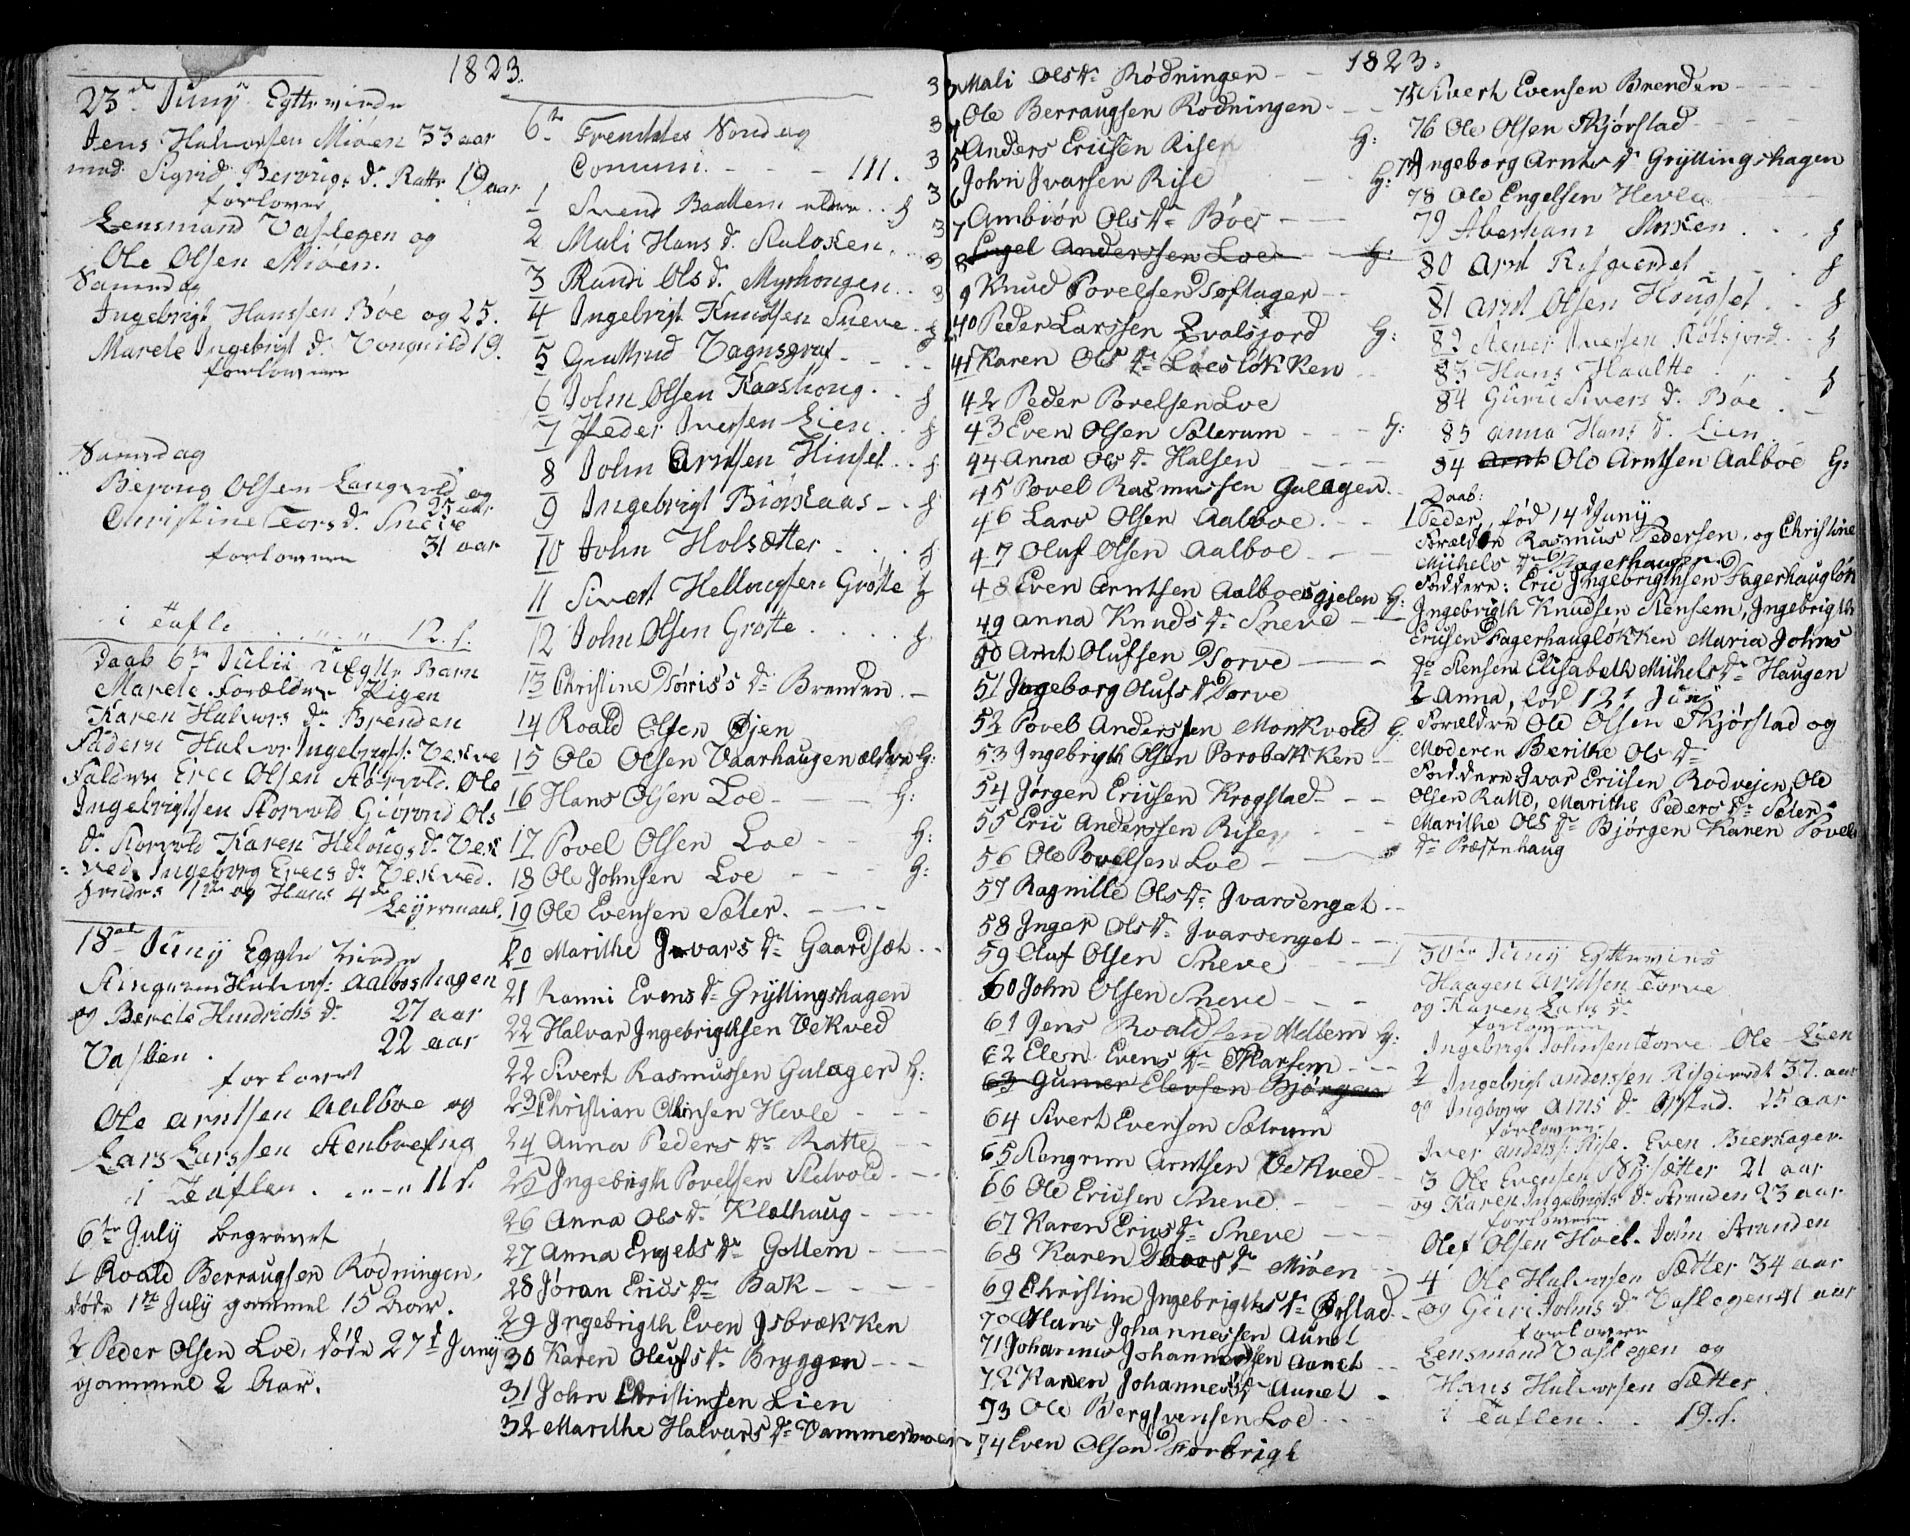 1823.
23 Juny Egtteviede
Jens Halvorsen Miøen 33 aar
med Sigrid Berouigs D. Ratte 19 aar
forlover
Lensmand Vaslegen og
Ole Olsen Miøen.
Samedag
Ingebrigt Hanssen Bøe og 25.
Marete Ingebrigt D. Vongvild 19.
forlovere
Samedag
Beroug Olsen Langvold og
35 aar
Christine Tors D. Sneve
forlovere 31 aar
i Tafle . . . 12. s.
Daab 6te Julii Barn
Marete Forældre Pigen
Karen Halvors D. Brenden
Faderen Halvor Ingebrigts: Vekve
Faddere Eric Olsen Storvold. Ole
Ingebrigtsen Storvold Giørond Ols
D. Storvold Karen Helougs D. Vek
ved. Ingeborg Erecs D. Vekved.
hendes 1te og Hans 4de
Leyermaal.
18de Juny Egte viede
Halvors: Aalboshagen
og Berete Hindrichs D. 27 aar
Vaslien . 22 aar
forlovet
Ole Arntsen Aalboe og
Lars Larssen Stenboeeng
i Taflen . . . 11 s.
6te July begravet
1 Roald Berraugsen Rødningen,
døde 1te July gammel 15 Aar.
2 Peder Olsen Loe, døde 27d Juny
gammel 2 Aar.
6te Trenitatis Søndag
Comuni. - - - 111.
1 Svend Baattem eldre . . H
2 Mali Hans D. Staløken . .
3 Randi Ols D. Myrhougen . .
4 Ingebrigt Knudsen Sneve . H
5 Gruttrud Vognsgraf - - . .
6 John Olsen Kaashoug . . H
7 Peder Iversen Lien . . H
8 John Arntsen Hinset . . H
9 Ingebrigt Biørkaas - . H
10 John Holsætter . . . H
11 Sivert Hellougsen Grøtte H
12 John Olsen Grøtte . . . . H
13 Christine Torris's Dr Brenden . -
14 Roald Olsen Øjen
15 Ole Olsen Vaarhaugen ældre H:
16 Hans Olsen Loe - - H:
17 Povel Olsen Loe - - H:
18 Ole Johnsen Loe - - - H:
19 Ole Evensen Sæter. - - -
20 Marithe Jvars Dr Gaardsæt . -
21 Ranni Evens Dr Gryttingshagen
22 Halvar Jngebrigthsen Vekved
22 Sivert Rasmussen Gulager H:
23 Christian Olsen Hevle - - -
24 Anna Peders Dr Ratte - -
25 Jngebrigth Povelsen Stølvold - - -
26 Anna Ols Dr Klælhaug - - -
27 Anna Engebs Dr Gottem - - - -
28 Jøran Erics Dr Bak - - - -
29 Jngebrigth Even Jsbrækken
30 Karen Olufs Dr Bryggen - - -
31 John Christinsen Lien
32 Marithe Halvars Dr Vammervolen
1823.
33 Mali Ols Dr Rødningen - - -
34 Ole Berraugsen Rødningen - - -
35 Anders Ericsen Risen H:
36 John Jvarsen Rise - - H:
37 Ambiør Ols Dr Bøe - - -
38 Engel Anderssen Loe - - H:
39 Knud Povelsen Tøftager - -
40 Peder Larssen Qvalsjord H:
41 Karen Ols Dr Loesløkken
42 Peder Povelsen Loe
43 Even Olsen Sæterum - - - H:
44 Anna Ols Dr Halsen - - - -
45 Povel Rasmussen Gulagen. -
46 Lars Olsen Aalboe . - -
47 Oluf Olsen Aalboe . - - -
48 Even Arntsen Aalboesgjelen H:
49 Anna Knuds Dr Sneve - - -
50 Arnt Olufsen Torve - - -
51 Jngeborg Olufs Dr Torve
52 Povel Anderssen Morkvold H:
53 Jngebrigth Olsen Brobakken - -
54 Jørgen Ericsen Krogstad - - -
55 Eric Anderssen Risen - - -
56 Ole Povelsen Loe - - -
57 Ragnille Ols Dr Jvarsenget - -
58 Jnger Ols Dr Jvarsenget - -
59 Oluf Olsen Sneve - - -
60 John Olsen Sneve - - -
61 Jens Roaldsen Mellem H:
62 Elen Evens Dr Harsem - - -
63 Gunner Elevsen Bjørgen
64 Sivert Evensen Sætrum
65 Stengrim Arntsen Vekved - -
66 Ole Ericsen Sneve - - -
67 Karen Erics Dr Sneve - - -
68 Karen Dr Miøen - -
69 Christine Jngebrigths Dr Ørstad -
70 Hans Johannessen Aunet
71 Johannes Johannessen Aunet - -
72 Karen Johannes Dr Aunet -
73 Ole Bergsvensen Loe . - - -
74 Even Olsen Forbrigt
75 Sivert Evensen Brenden - - - -
76 Ole Olsen Skjørstad - - - -
77 Jngeborg Arnts Dr Gryttingshagen
78 Ole Engelsen Hevle
79 Aberham Morken . . . H
80 Arnt Risgierdet - - . H
81 Arnt Olsen Hougset . . H
82 Stener Iversen Kølsjord . . H
83 Hans Haaltte . . . H
84 Guru Sivers D. Bøe . -
85 Anna Hans D. Lien
84 Arnt Ole Arntsen Aalboe H:
Daab:
1 Peder, fød 14d Juny
Forældre Rasmus Pedersen, og Christine
Michels Dr Fagerhaugen
Faddere: Eric Jngebrigthsen Fagerhaugløk
Jngebrigth Knudsen Stensem, Jngebrigth
Ericsen Fagerhaugløkken Maria Johns
Dr Stensem Elisabeth Michels Dr Haugen
2 Anna, fød 12t Juny
Forældre Ole Olsen Skjørstad og
Moderen Berithe Ols Dr
Faddere Jvar Ericsen Rodvejen, Ole
Olsen Ratte, Marithe Peders Dr Sæter
Marithe Ols Dr Bjørgen Karen Povels
Dr Præstenhaug
1 30te Juny Egteviede
Haagen Arntsen Torve
og Karen Lars D.
forlovere
Ingebrigt Johnsen Torve Ole Lien
2 Ingebrigt Anderssen Risgierdt 37. aar
og Ingbore Arns D. Opstad. 25 aar
forlovere
Iver Anders: Rise. Even Bierkager.
3 Ole Evensen Nysætter 21 aar
og Karen Ingebrigts D. Stranden 23 aar
forlovere
Olef Olsen Hoel. John Stranden
4 Ole Halvorsen Sætter 34 aar
og Guri Johns D. Vaslegen 41 aar
forlovere
Lensmand Vaslegen og
Hans Halvorsen Sætter
i Taflen . . 19. s.